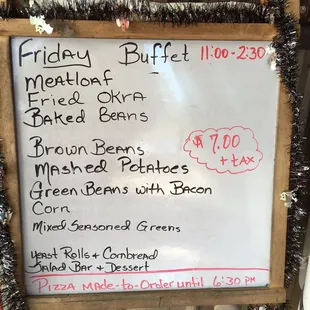 Friday Buffet 11:00-2:30
Meatloaf
Fried Okra
Baked Beans
Brown Beans
$7.00
+ tax
Mashed Potatoes
Green Beans with Bacon
Corn
Mixed Seasoned Greens
Yeast Rolls & Cornbread
Salad Bar & Dessert
Pizza made-to-order until 6:30 pm